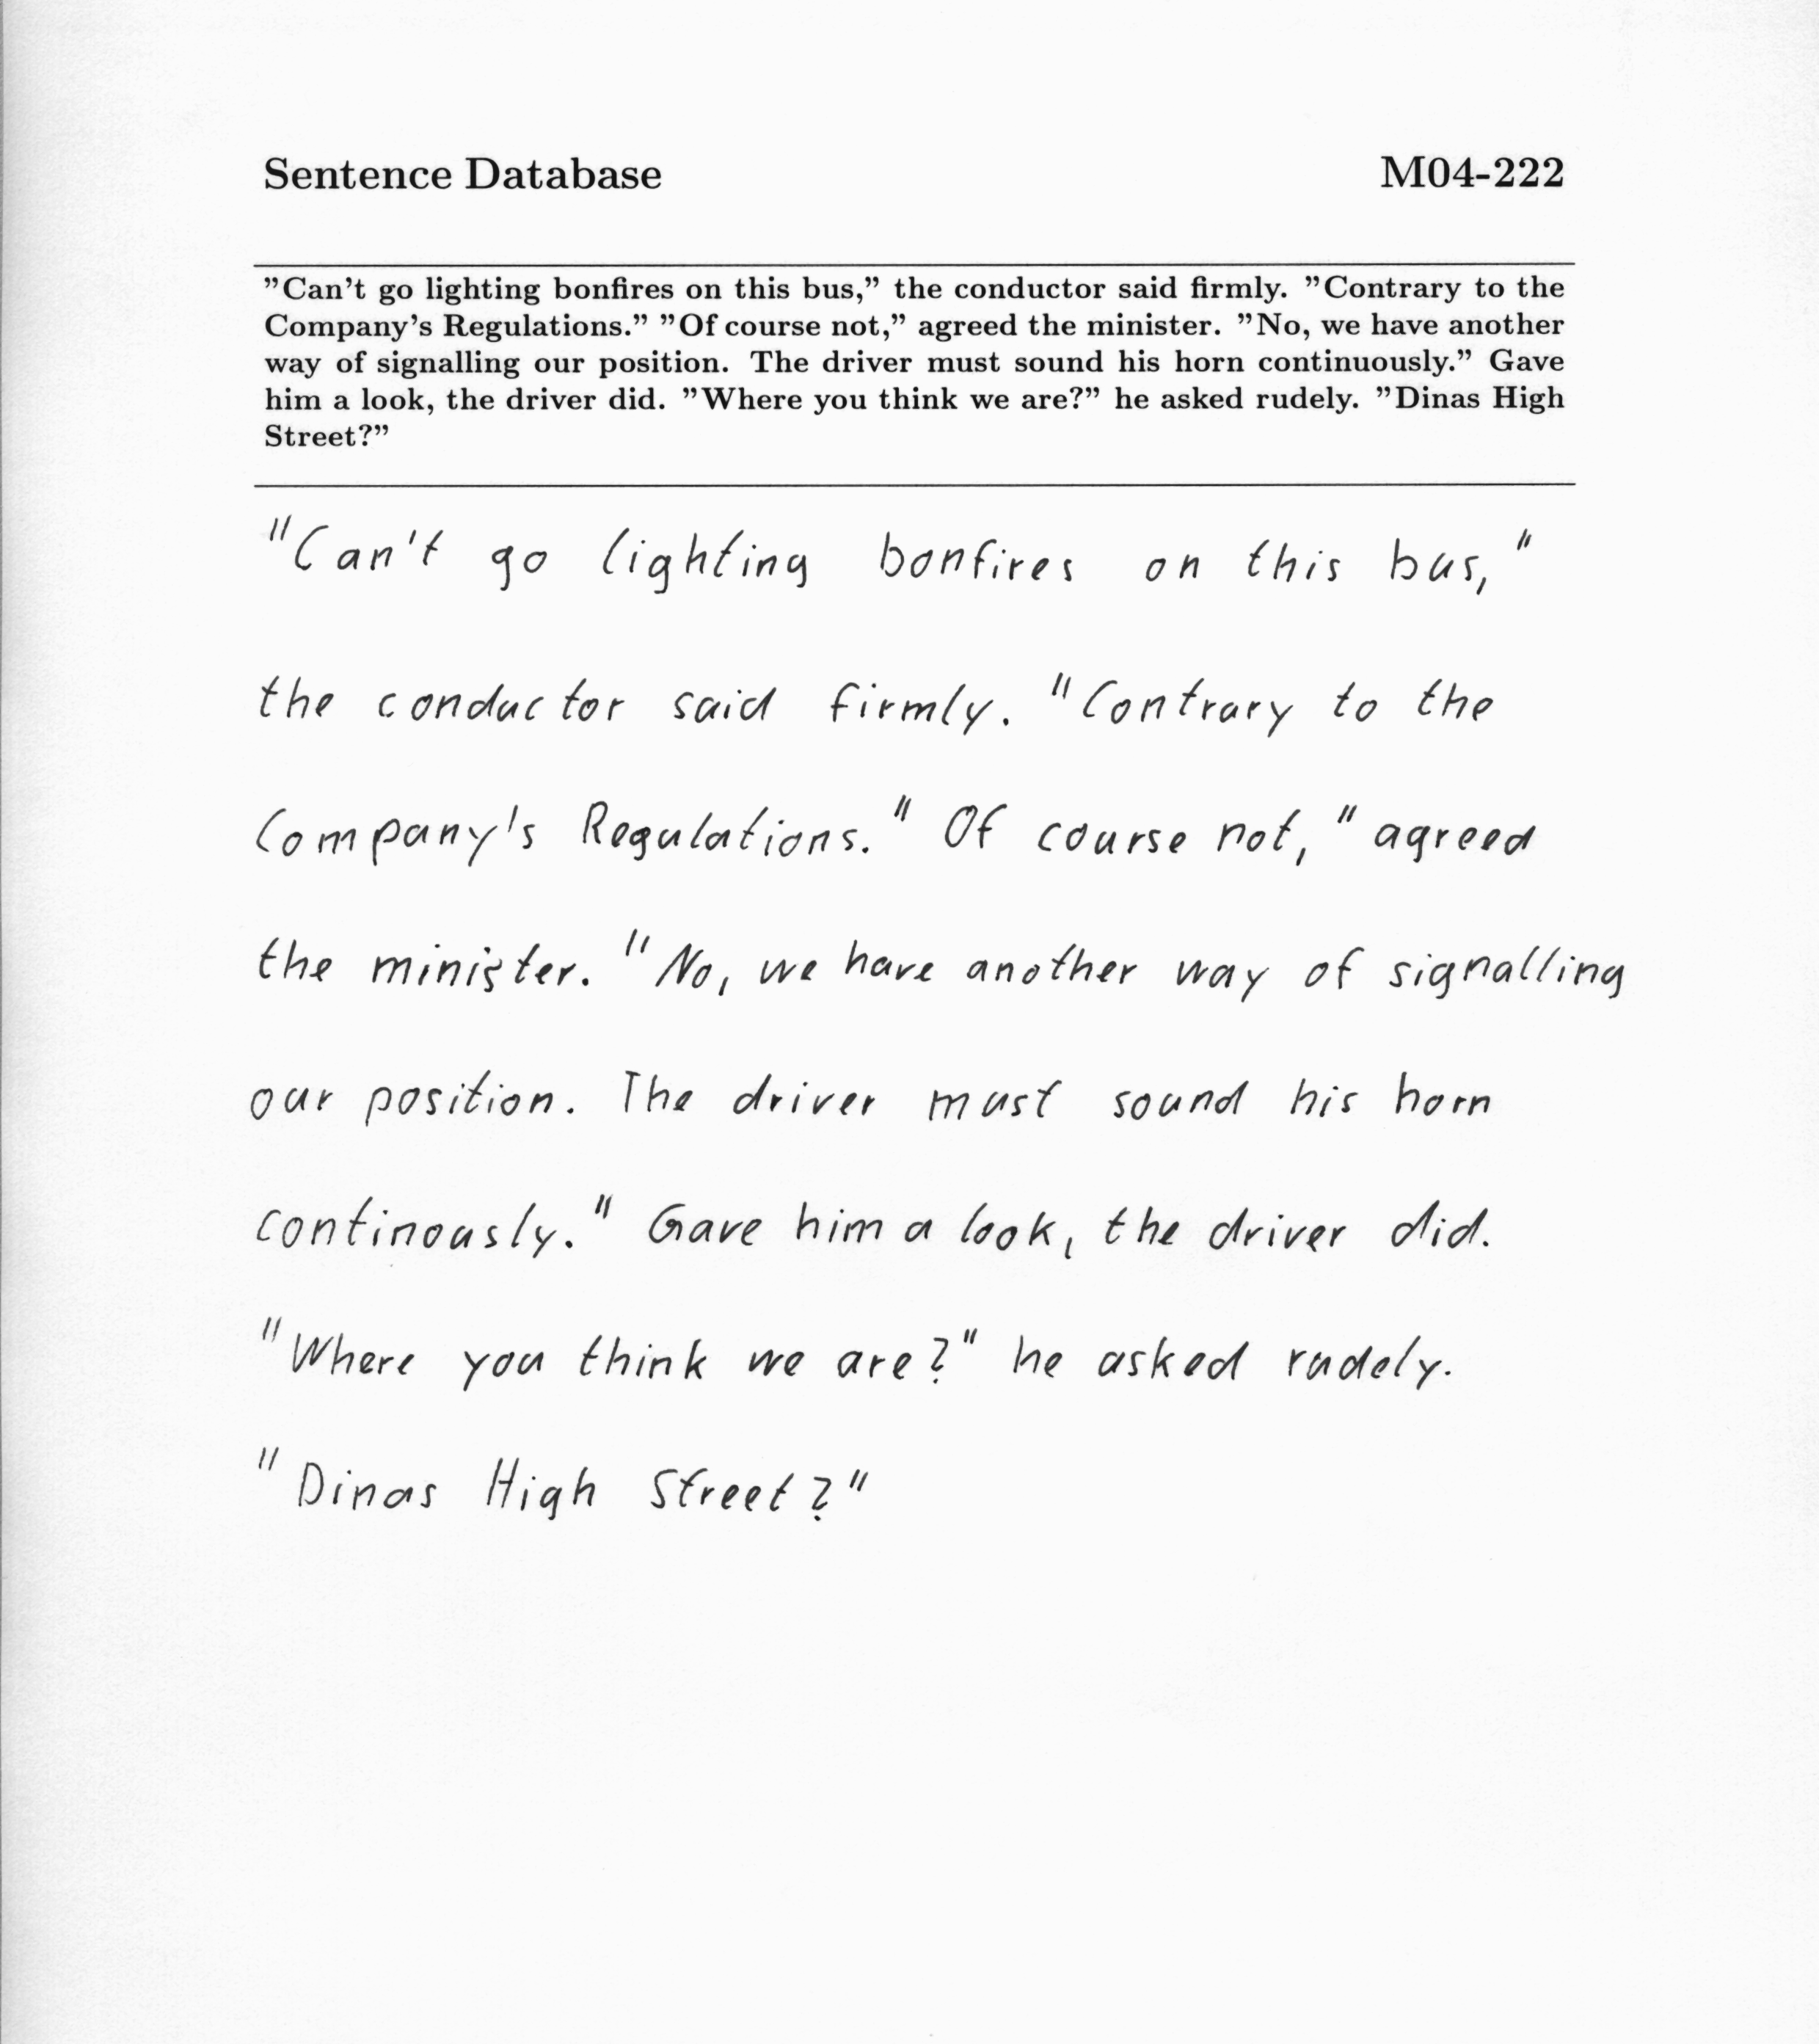 Sentence Database M04-222
”Can’t go lighting bonfires on this bus,” the conductor said firmly. ”Contrary to the
Company’s Regulations.” ”Of course not,” agreed the minister. ”No, we have another
way of signalling our position. The driver must sound his horn continuously.” Gave
him a look, the driver did. ”Where you think we are?” he asked rudely. ”Dinas High
Street?”
"Can't go lighting bonfires on this bus,"
the conductor said firmly. "Contrary to the
Company's Regulations." Of course not," agreed
the minister. "No, we have another way of signalling
our position. The driver must sound his horn
continously." Gave him a look, the driver did.
"Where you think we are?" he asked rudely.
"Dinas High Street?"